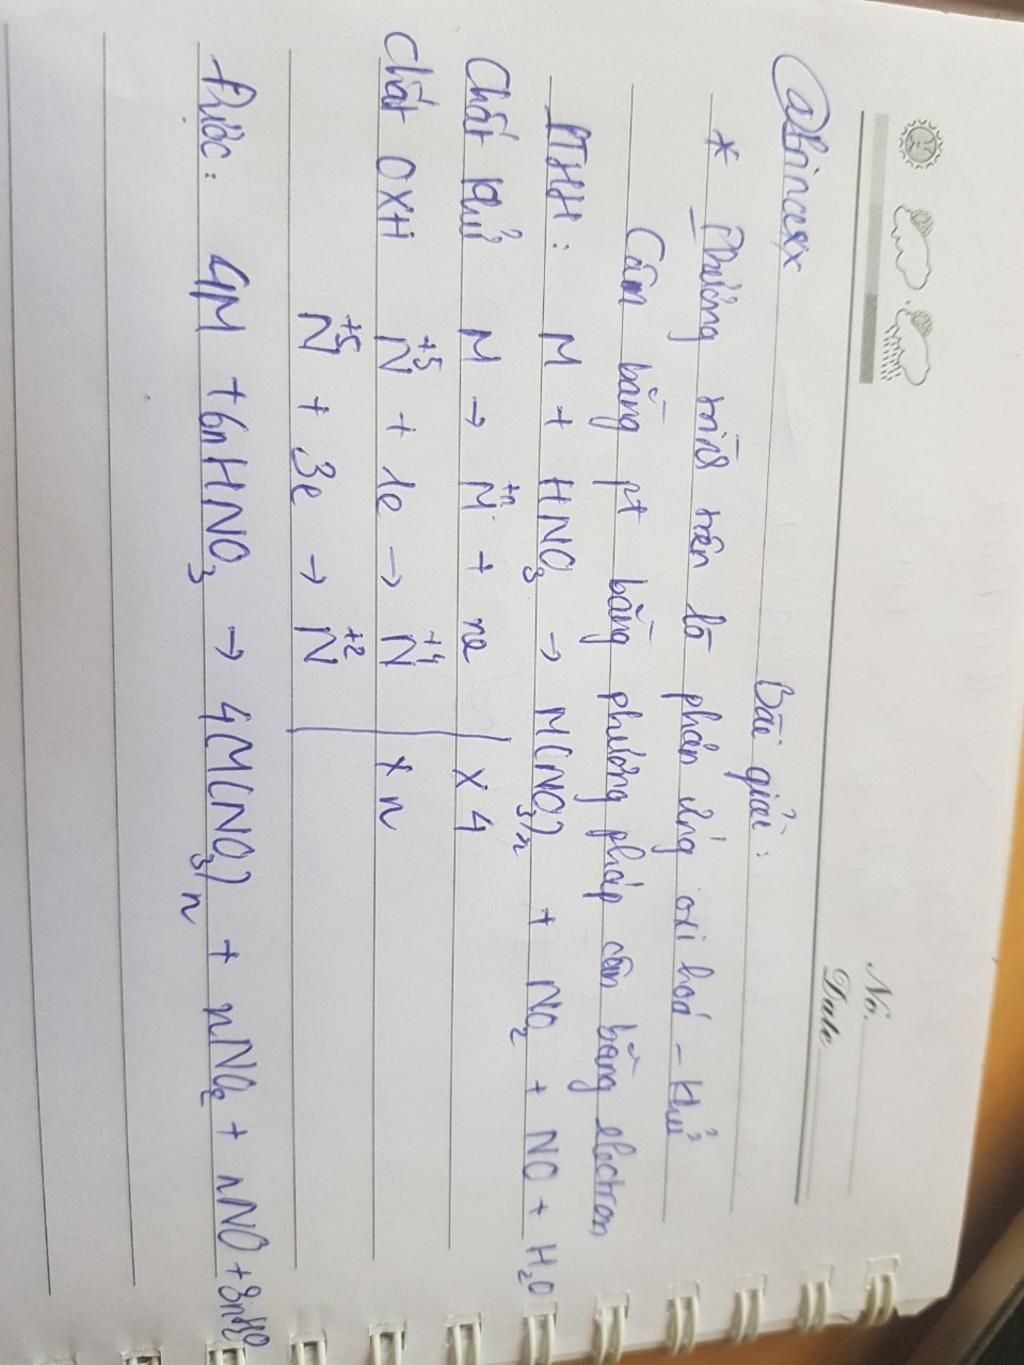 No.
Date
@Princexx
Bài giải:
* Phương trình trên là phản ứng oxi hoá - khử
Cân bằng pt bằng phương pháp cân bằng electron
PTHH: M + HNO₃ → M(NO₃)ₙ + NO₂ + NO + H₂O
Chất khử M → M⁺ⁿ + ne | x 4
Chất OXH N⁺⁵ + 1e → N⁺⁴ | x n
N⁺⁵ + 3e → N⁺²
Được: 4M + 6nHNO₃ → 4M(NO₃)ₙ + nNO₂ + nNO + 3nH₂O